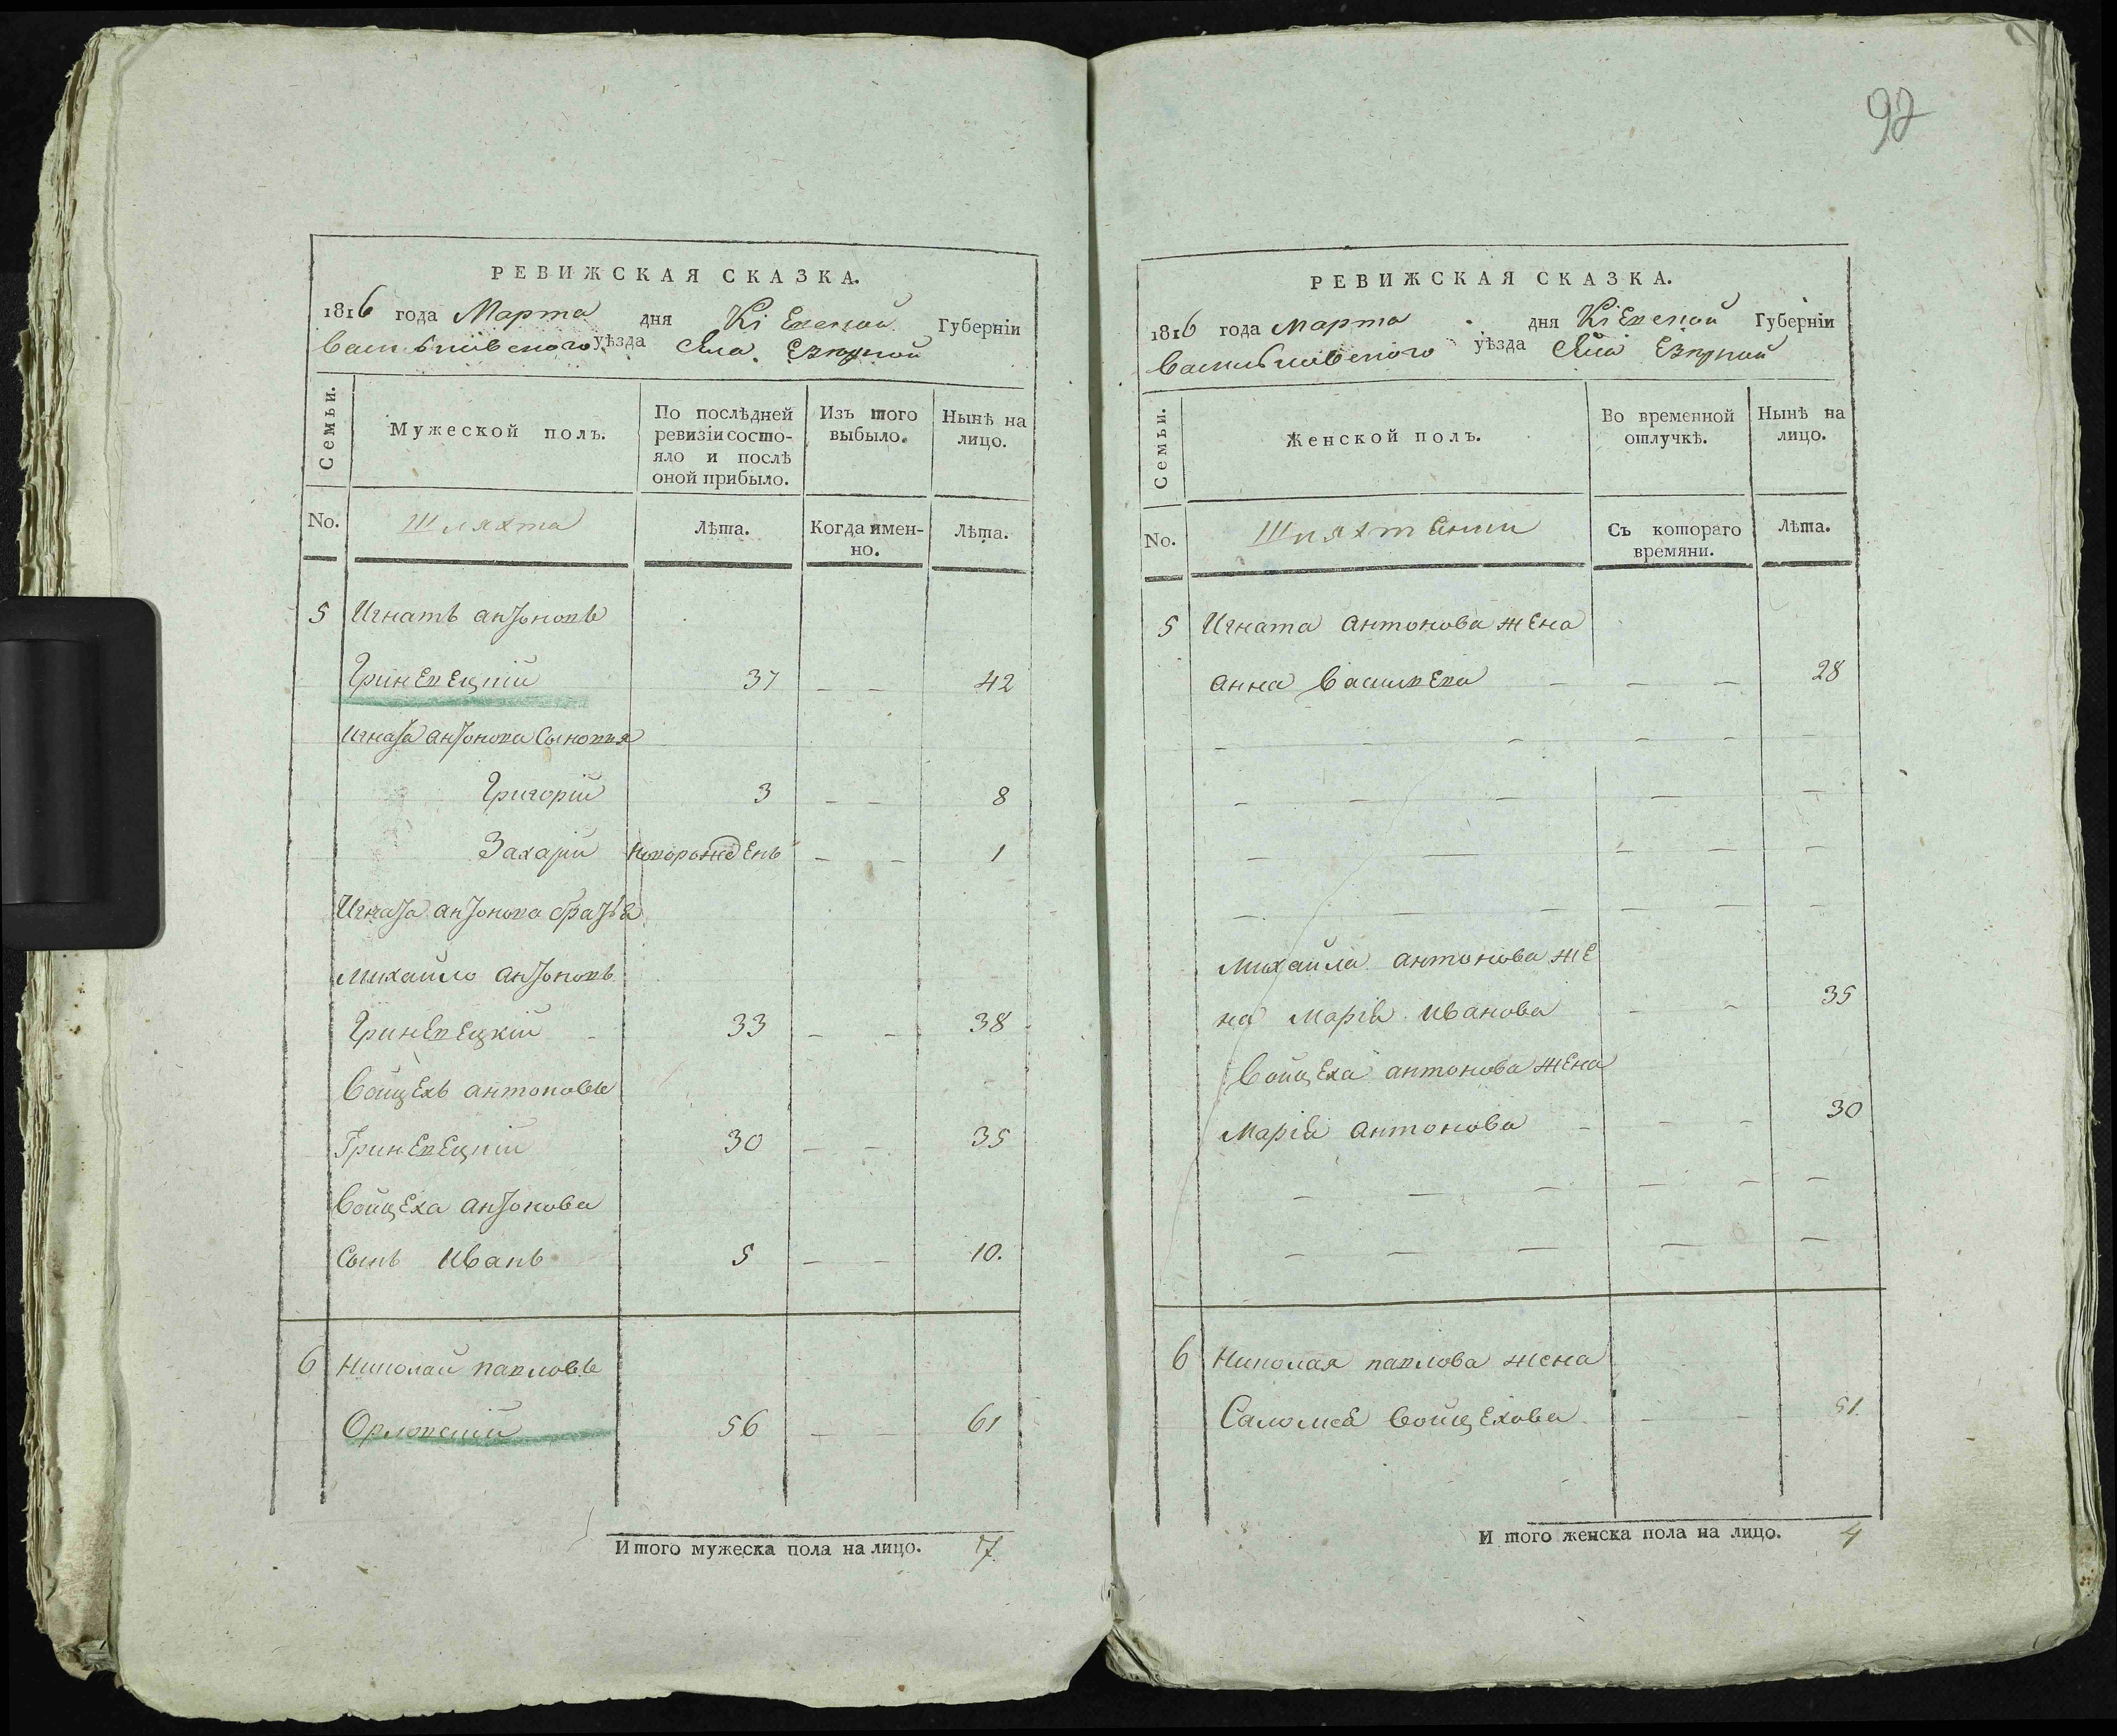 92
РЕВИЖСКАЯ СКАЗКА.
1816 года Марта дня Кіевской Губерніи
Васильковского уѣзда Села Езерной
Семьи.
Мужеской полъ.
По послѣдней ревизіи состояло и послѣ оной прибыло.
Изъ того выбыло.
Нынѣ на лицо.
No.
Шляхта
Лѣта.
Когда именно.
Лѣта.
5 Игнатъ антоновъ
Гриневецкій 37 — — 42
Игната антонова Сыновья
Григорій 3 — — 8
Захарій новорожденъ — — 1
Игната антонова братья
михайло антоновъ
Гриневецкій - 33 — — 38
Войцехъ антоновъ
Гриневецкій 30 — — 35
Войцеха антонова
Сынъ Иванъ 5 — — 10.
6 Николай павловъ
Орловскій 56 — — 61
Итого мужеска пола на лицо. 7.
РЕВИЖСКАЯ СКАЗКА.
1816 года марта дня Кіевской Губерніи
Васильковского уѣзда Села Езерной
Семьи.
Женской полъ.
Во временной отлучкѣ.
Нынѣ на лицо.
No.
Шляхтенки
Съ котораго времяни.
Лѣта.
5 Игната антонова жена
анна Васильева — — — 28
— — — —
— — — — —
— — — — —
— — — — — —
михайла антонова же
на марія иванова — — 35
Войцеха антонова жена
марія антонова — — — 30
— — — — — —
— — — — —
6 Николая павлова жена
Саломея Войцехова — — 51.
И того женска пола на лицо. 4